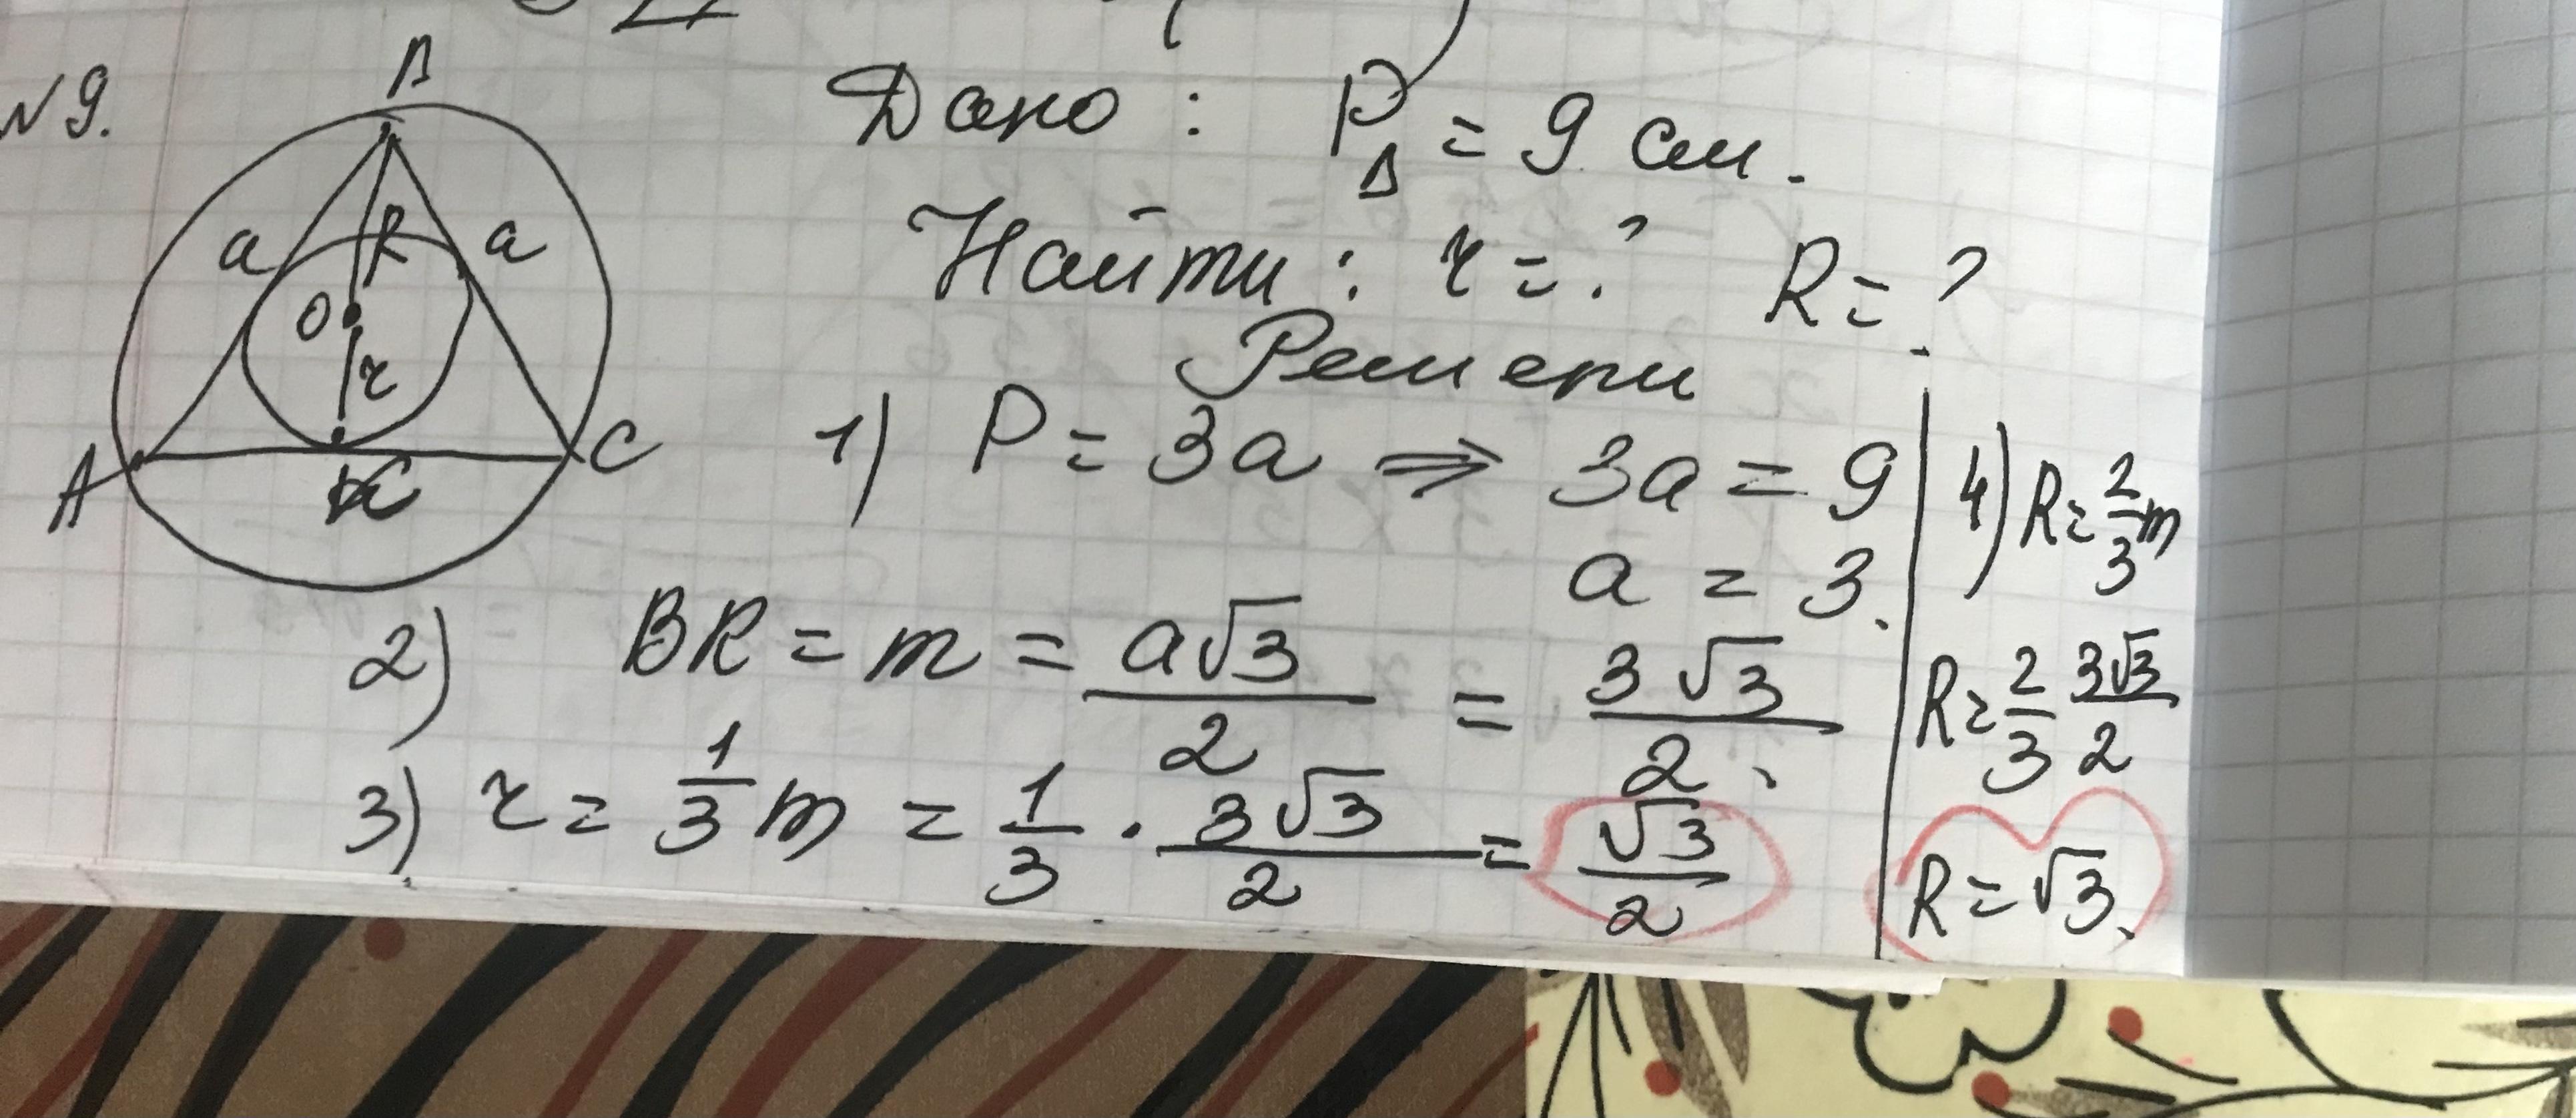 №9.
B
a R a
O
r
A K C
Дано: P△ = 9 см.
Найти: r = ? R = ?
Решени
1) P = 3a ⇒ 3a = 9
a = 3.
2) BK = m = a√3/2 = 3√3/2.
3) r = 1/3 m = 1/3 · 3√3/2 = √3/2
4) R = 2/3 m
R = 2/3 3√3/2
R = √3.